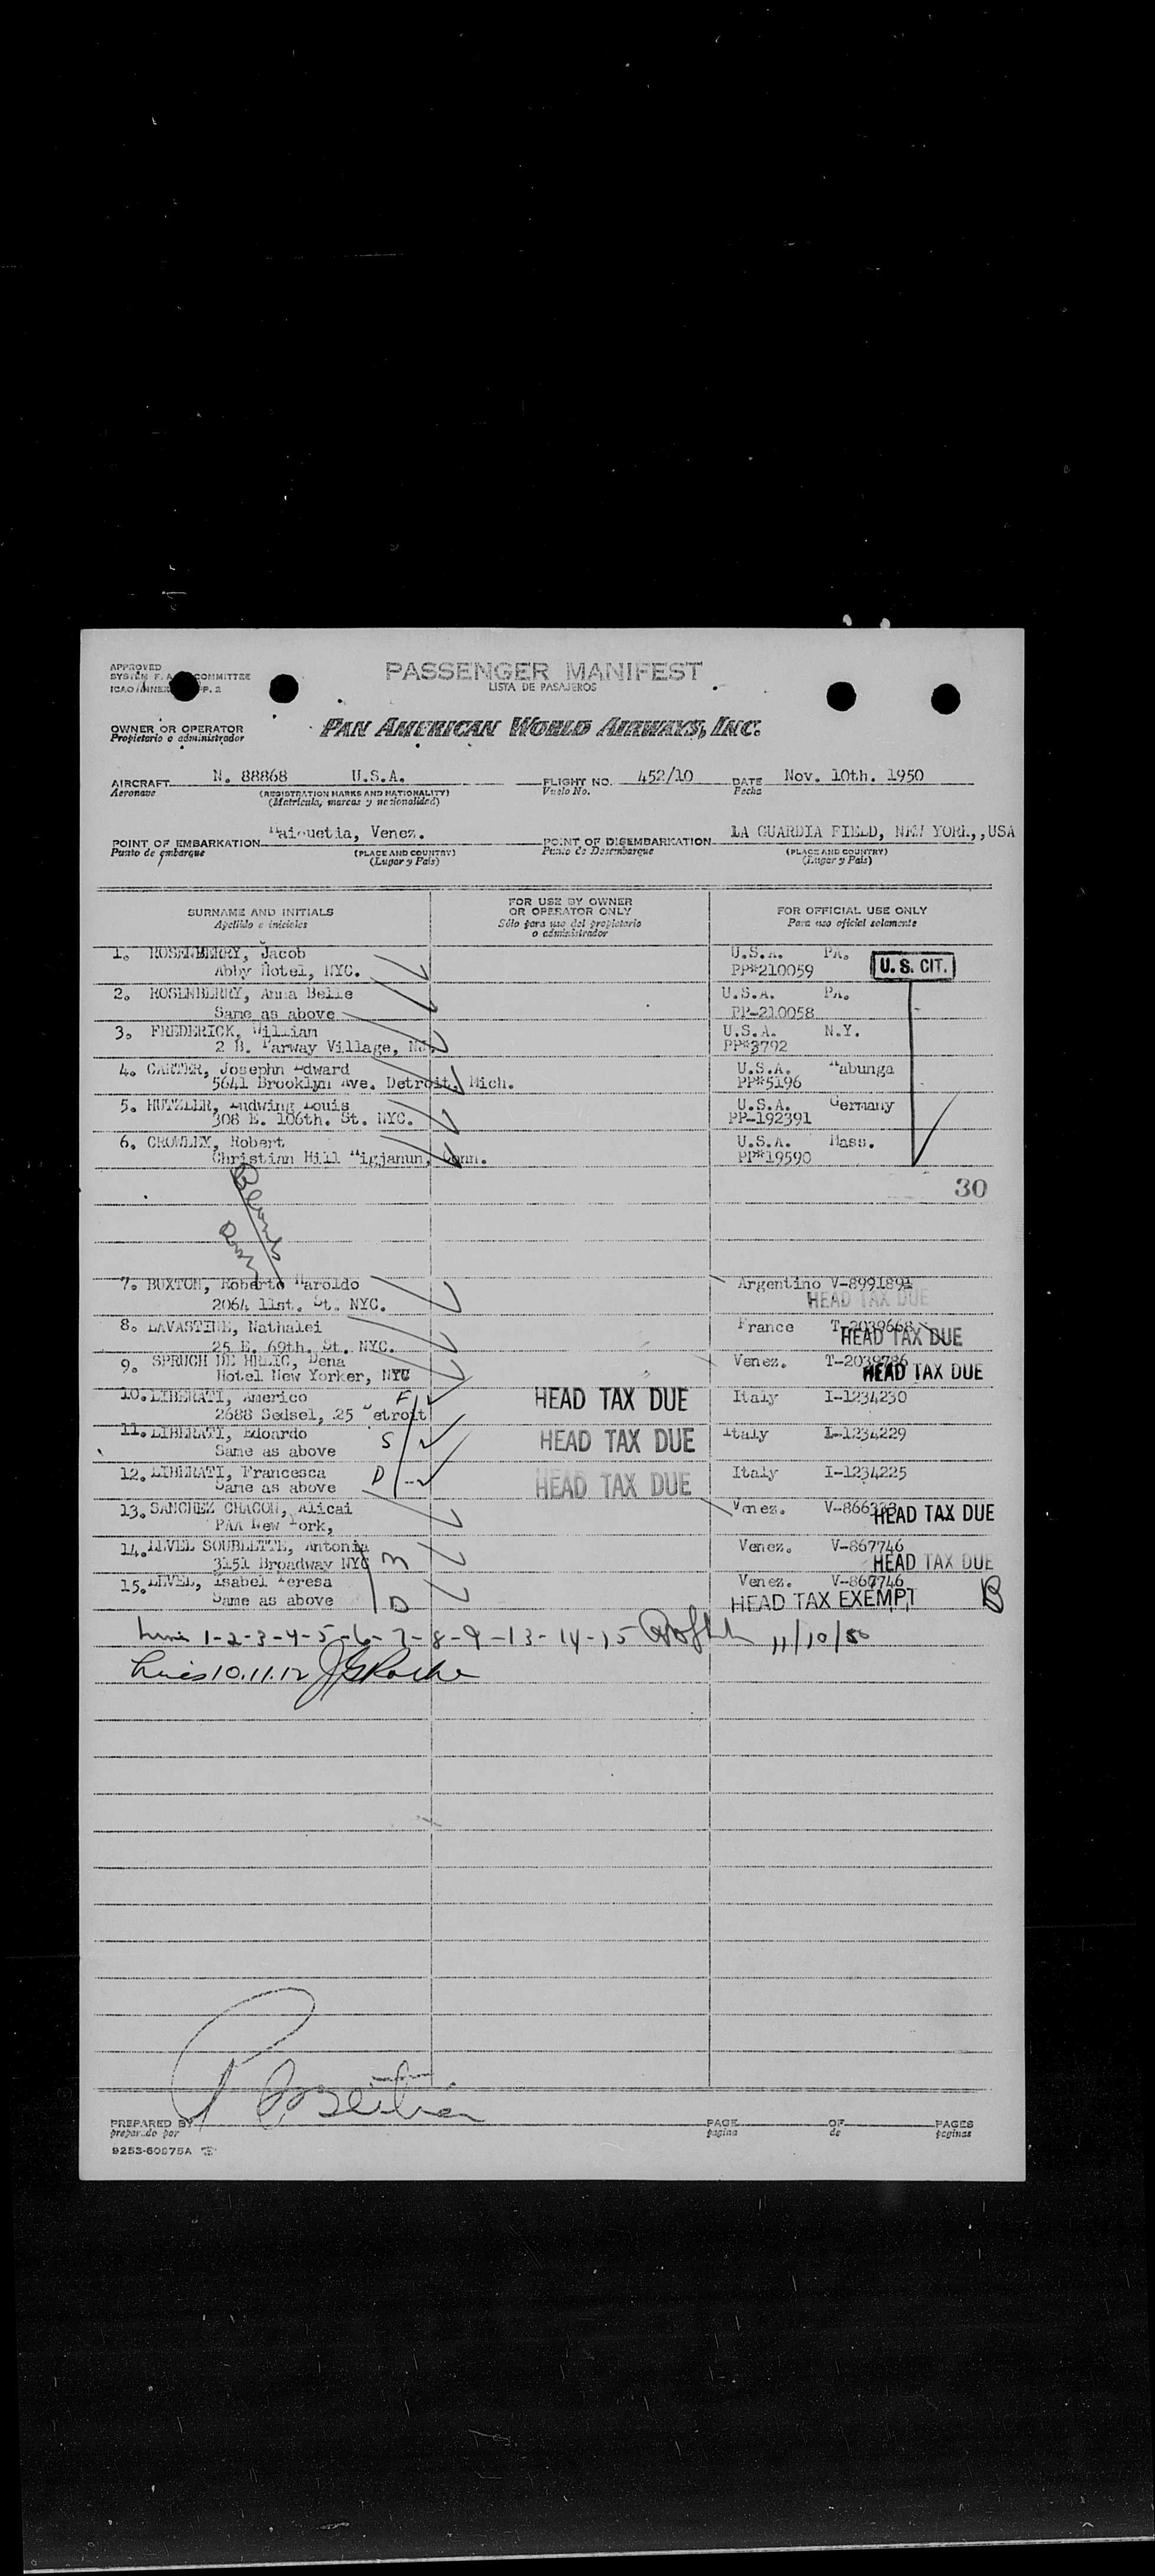 APPROVED
SYSTEM F. A. COMMITTEE
ICAO ANNEX P. 2
PASSENGER MANIFEST
LISTA DE PASAJEROS
OWNER OR OPERATOR
Propietario o administrador
PAN AMERICAN WORLD AIRWAYS, INC.
AIRCRAFT N. 88868 U.S.A. FLIGHT NO. 452/10 DATE Nov. 10th. 1950
Aeronave (REGISTRATION MARKS AND NATIONALITY) Vuelo No. Fecha
(Matricula, marcas y nacionalidad)
POINT OF EMBARKATION Maiquetia, Venez. POINT OF DISEMBARKATION LA GUARDIA FIELD, NEW YORK,,USA
Punto de embarque (PLACE AND COUNTRY) Punto de Desembarque (PLACE AND COUNTRY)
(Lugar y País) (Lugar y País)
SURNAME AND INITIALS
Apellido e iniciales
FOR USE BY OWNER
OR OPERATOR ONLY
Sólo para uso del propietario
o administrador
FOR OFFICIAL USE ONLY
Para uso oficial solamente
1. ROSENBERRY, Jacob U.S.A. PA.
Abby Hotel, NYC. PP#210059 U. S. CIT.
2. ROSENBERRY, Anna Belle U.S.A. PA.
Same as above PP-210058
3. FREDERICK, William U.S.A. N.Y.
2 B. Parway Village, PP#3792
4. CARTER, Josephn Edward U.S.A.
5641 Brooklyn Ave. Detroit, Mich. PP#5196
5. HUTZLER, Ludwing Louis U.S.A. Germany
308 E. 106th. St. NYC. PP-192391
6. CROWLEY, Robert U.S.A. Mass.
Christian Hill Conn. PP#19590
30
Blank
7. BUXTON, Roberto Haroldo Argentino V-8991891
2064 11st. St. NYC. HEAD TAX DUE
8. LAVASTINE, Nathalei France T-2039668
25 E. 69th. St. NYC. HEAD TAX DUE
9. SPRUCH DE HRLIC, Dena Venez. T-2039786
Hotel New Yorker, NYC HEAD TAX DUE
10. LIBERATI, Americo F HEAD TAX DUE Italy I-1234230
2688 Sedsel, 25 Detroit
11. LIBERATI, Edoardo S HEAD TAX DUE Italy I-1234229
Same as above
12. LIBERATI, Francesca D HEAD TAX DUE Italy I-1234225
Same as above
13. SANCHEZ CHACON, Alicai Venez. HEAD TAX DUE
PAA New York,
14. LEVEL SOUBLETTE, Antonia M Venez. V-867746
3151 Broadway NYC HEAD TAX DUE
15. LEVEL, Isabel Teresa Venez. V-867746
Same as above D HEAD TAX EXEMPT B
1-2-3-4-5-6-7-8-9-13-14-15 11/10/50
Lines 10.11.12
PREPARED BY PAGE OF PAGES
preparado por pagina de paginas
9253-60975A